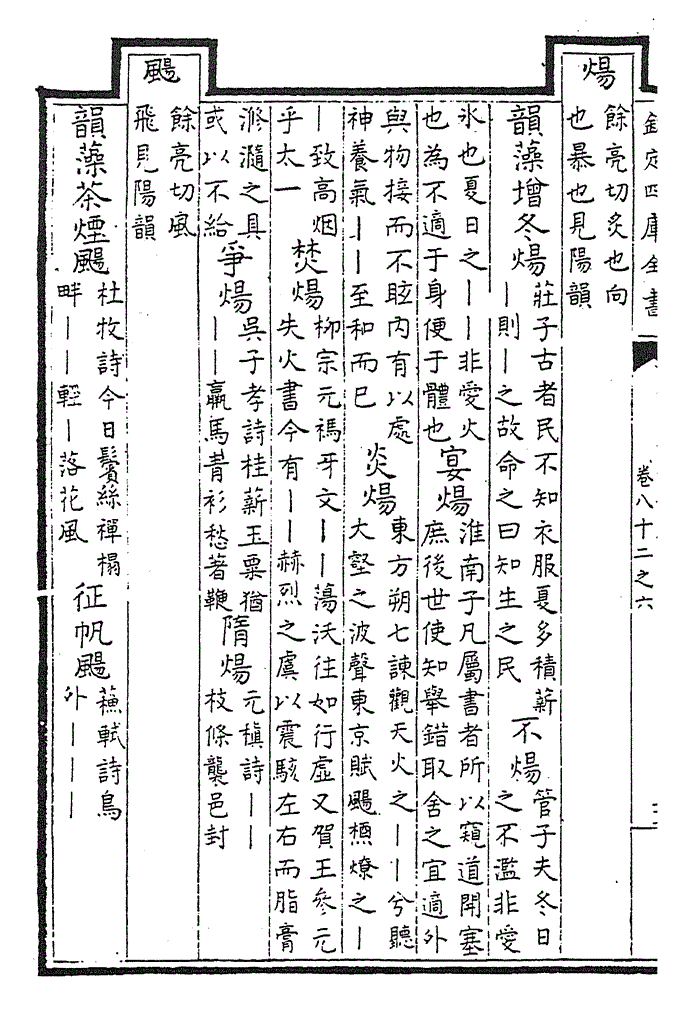 欽定四庫全書
卷八十二之六
二
煬
餘亮切炙也向
也暴也見陽韻
韻藻增冬煬
莊子古者民不知衣服夏多積薪
―則―之故命之曰知生之民
不煬
管子夫冬日
之不濫非愛
氷也夏日之――非愛火
也為不適于身便于體也
宴煬
淮南子凡屬書者所以窺道開塞
庶後世使知舉錯取舍之宜適外
與物接而不眩内有以處
神養氣――至和而已
炎煬
東方朔七諫觀天火之――兮聽
大壑之波聲東京賦颺槱燎之―
―致高烟
乎太一
焚煬
柳宗元禡牙文――蕩沃往如行虛又賀王參元
失火書今有――赫烈之虞以震駭左右而脂膏
滫瀡之具
或以不給
爭煬
吳子孝詩桂薪玉粟猶
――羸馬青衫愁著鞭
隋煬
元稹詩――
枝條襲邑封
颺
餘亮切風
飛見陽韻
韻藻茶煙颺
杜牧詩今日鬢絲禪榻
畔――輕―落花風
征帆颺
蘇軾詩鳥
外―――